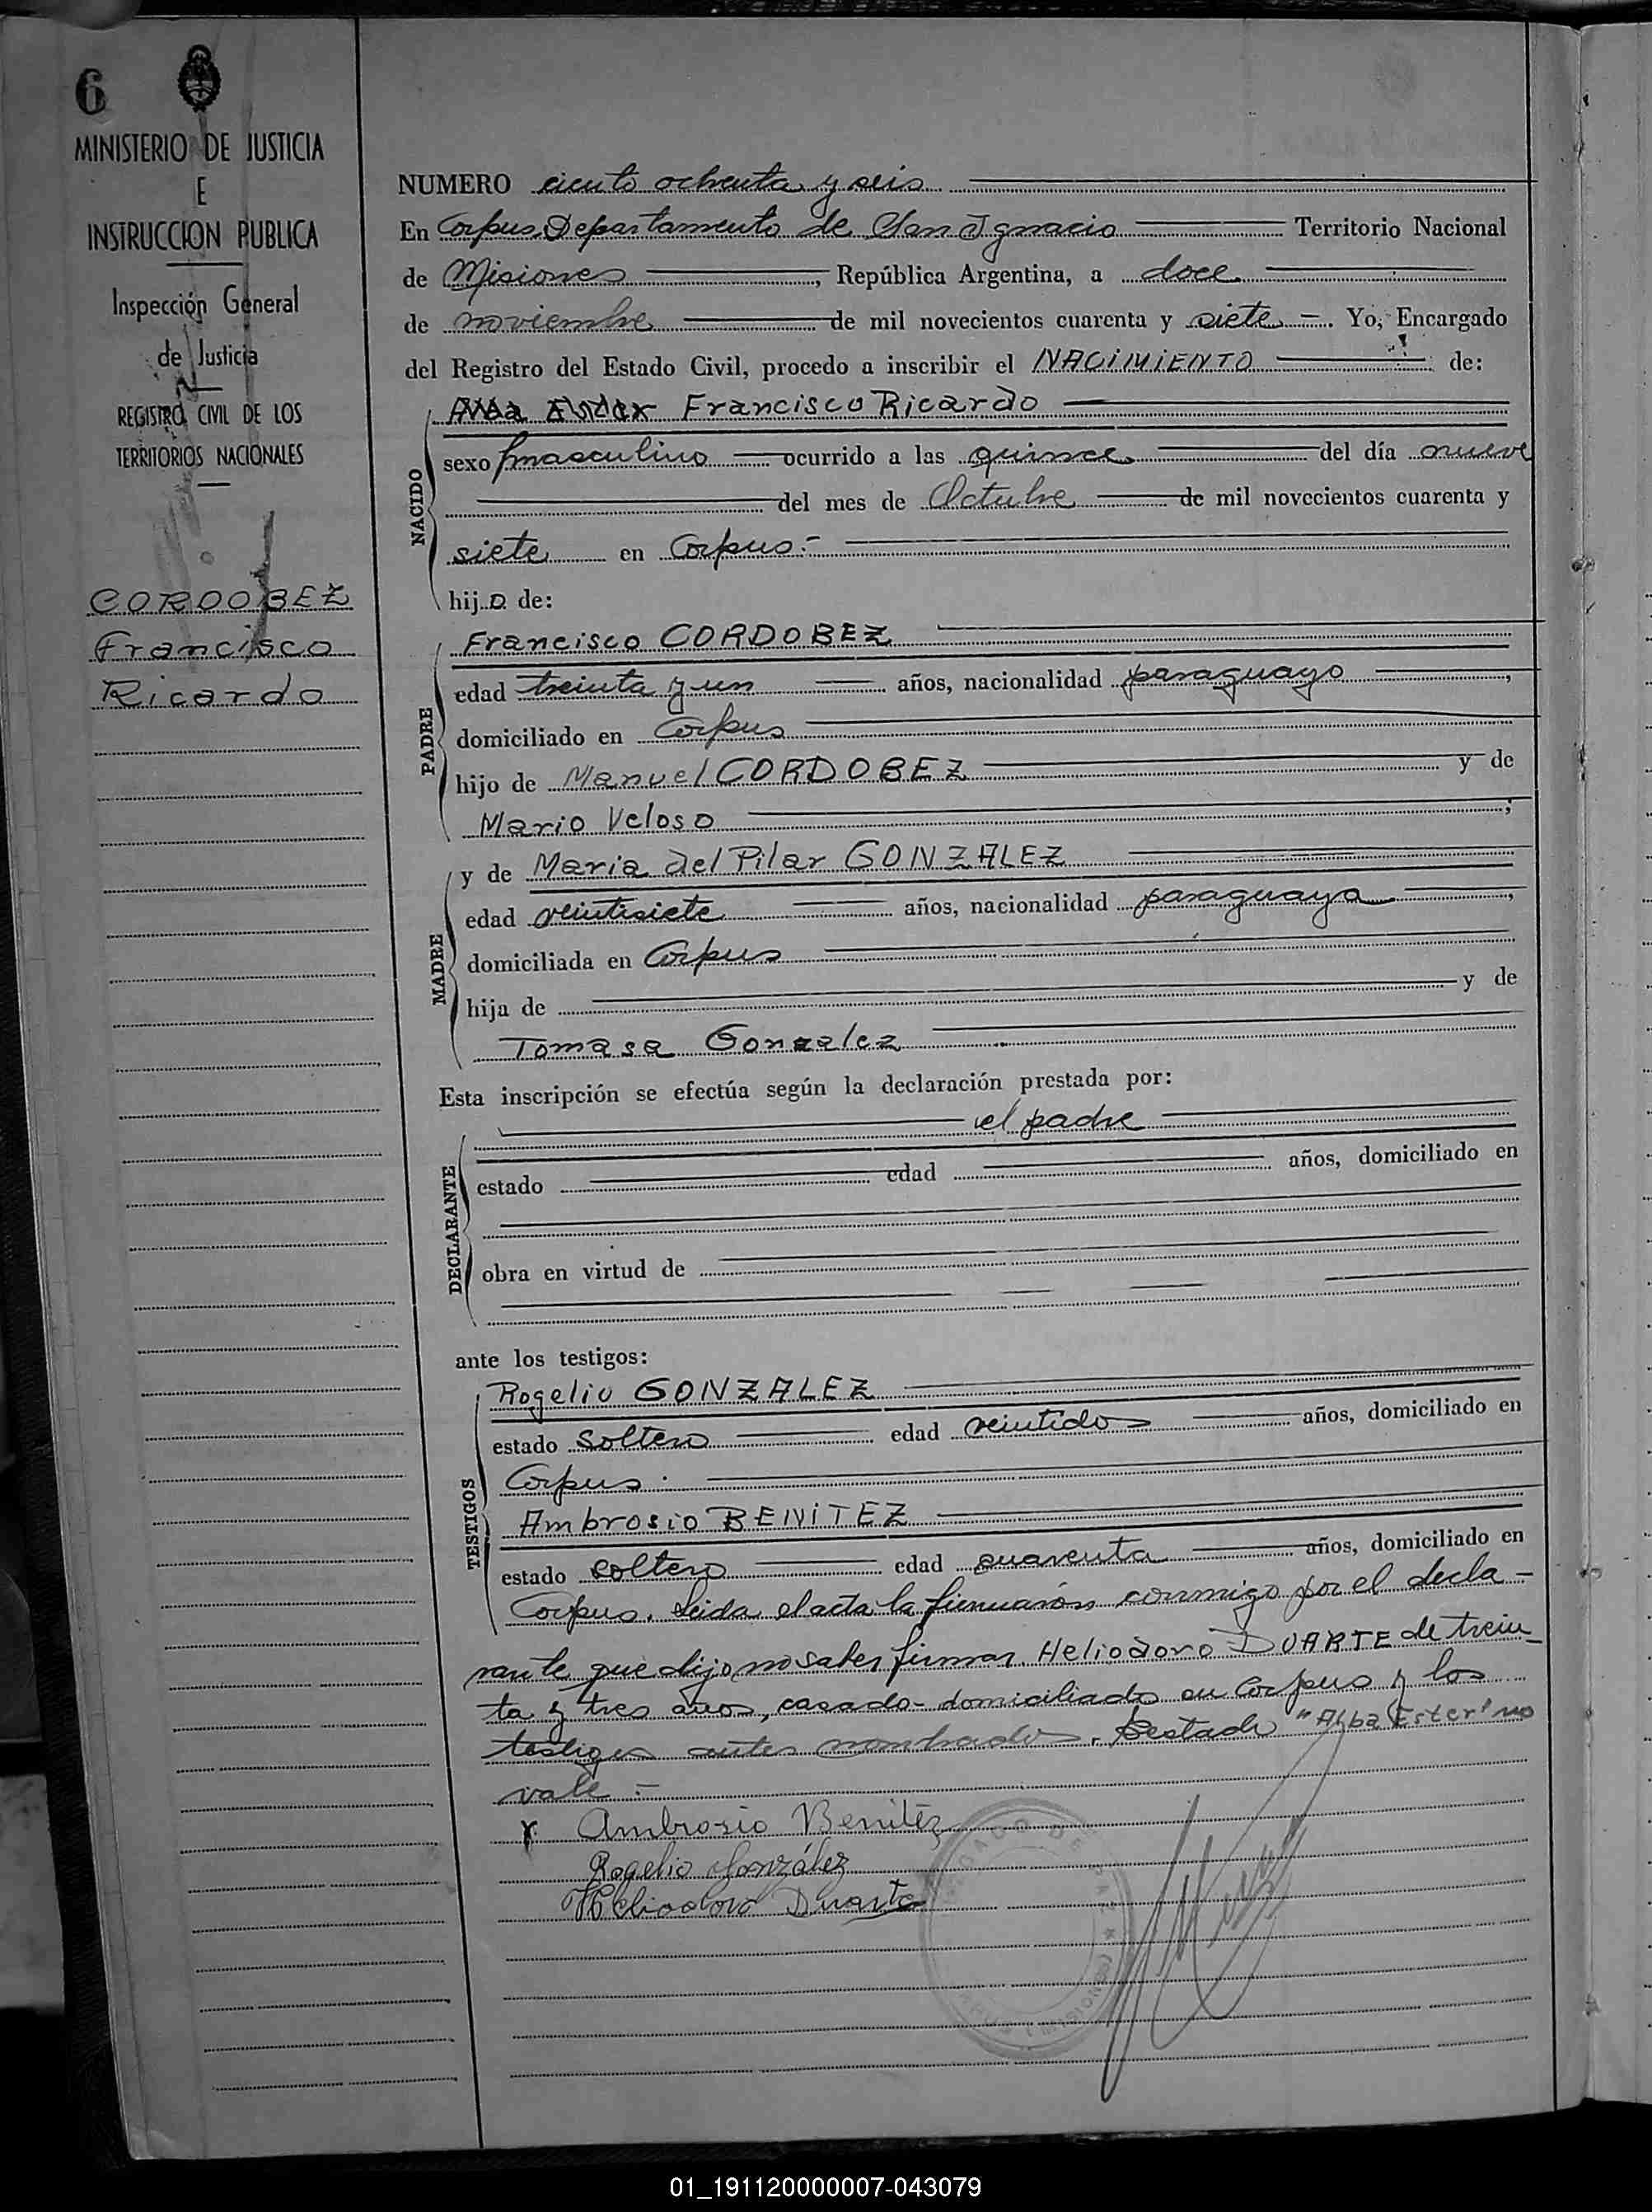 6
MINISTERIO DE JUSTICIA
E
INSTRUCCION PUBLICA
Inspección General
de Justicia
REGISTRO CIVIL DE LOS
TERRITORIOS NACIONALES
CORDOBEZ
Francisco
Ricardo
NUMERO ciento ochenta y seis
En Corpus Departamento de San Ignacio Territorio Nacional
de Misiones, República Argentina, a doce
de noviembre de mil novecientos cuarenta y siete -. Yo, Encargado
del Registro del Estado Civil, procedo a inscribir el NACIMIENTO de:
Francisco Ricardo
NACIDO
sexo masculino ocurrido a las quince del día nueve
del mes de Octubre de mil novecientos cuarenta y
siete en Corpus.-
hijo de:
PADRE
Francisco CORDOBEZ
edad treinta y un años, nacionalidad paraguayo,
domiciliado en Corpus
hijo de Manuel CORDOBEZ y de
Mario Veloso;
MADRE
y de Maria del Pilar GONZALEZ
edad veintisiete años, nacionalidad paraguaya,
domiciliada en Corpus
hija de y de
Tomasa Gonzalez
Esta inscripción se efectúa según la declaración prestada por:
DECLARANTE
el padre
estado edad años, domiciliado en
obra en virtud de
ante los testigos:
TESTIGOS
Rogelio GONZALEZ
estado soltero edad veintidos años, domiciliado en
Corpus.
Ambrosio BENITEZ
estado soltero edad cuarenta años, domiciliado en
Corpus. Leida el acta la firmaron conmigo por el decla-
rante que dijo no saber firmar Heliodoro DUARTE de trein-
ta y tres años, casado - domiciliado en Corpus y los
testigos antes nombrados. Testado "Alba Ester" no
vale -
Ambrosio Benitez
Rogelio González
Heliodoro Duarte
01_191120000007-043079